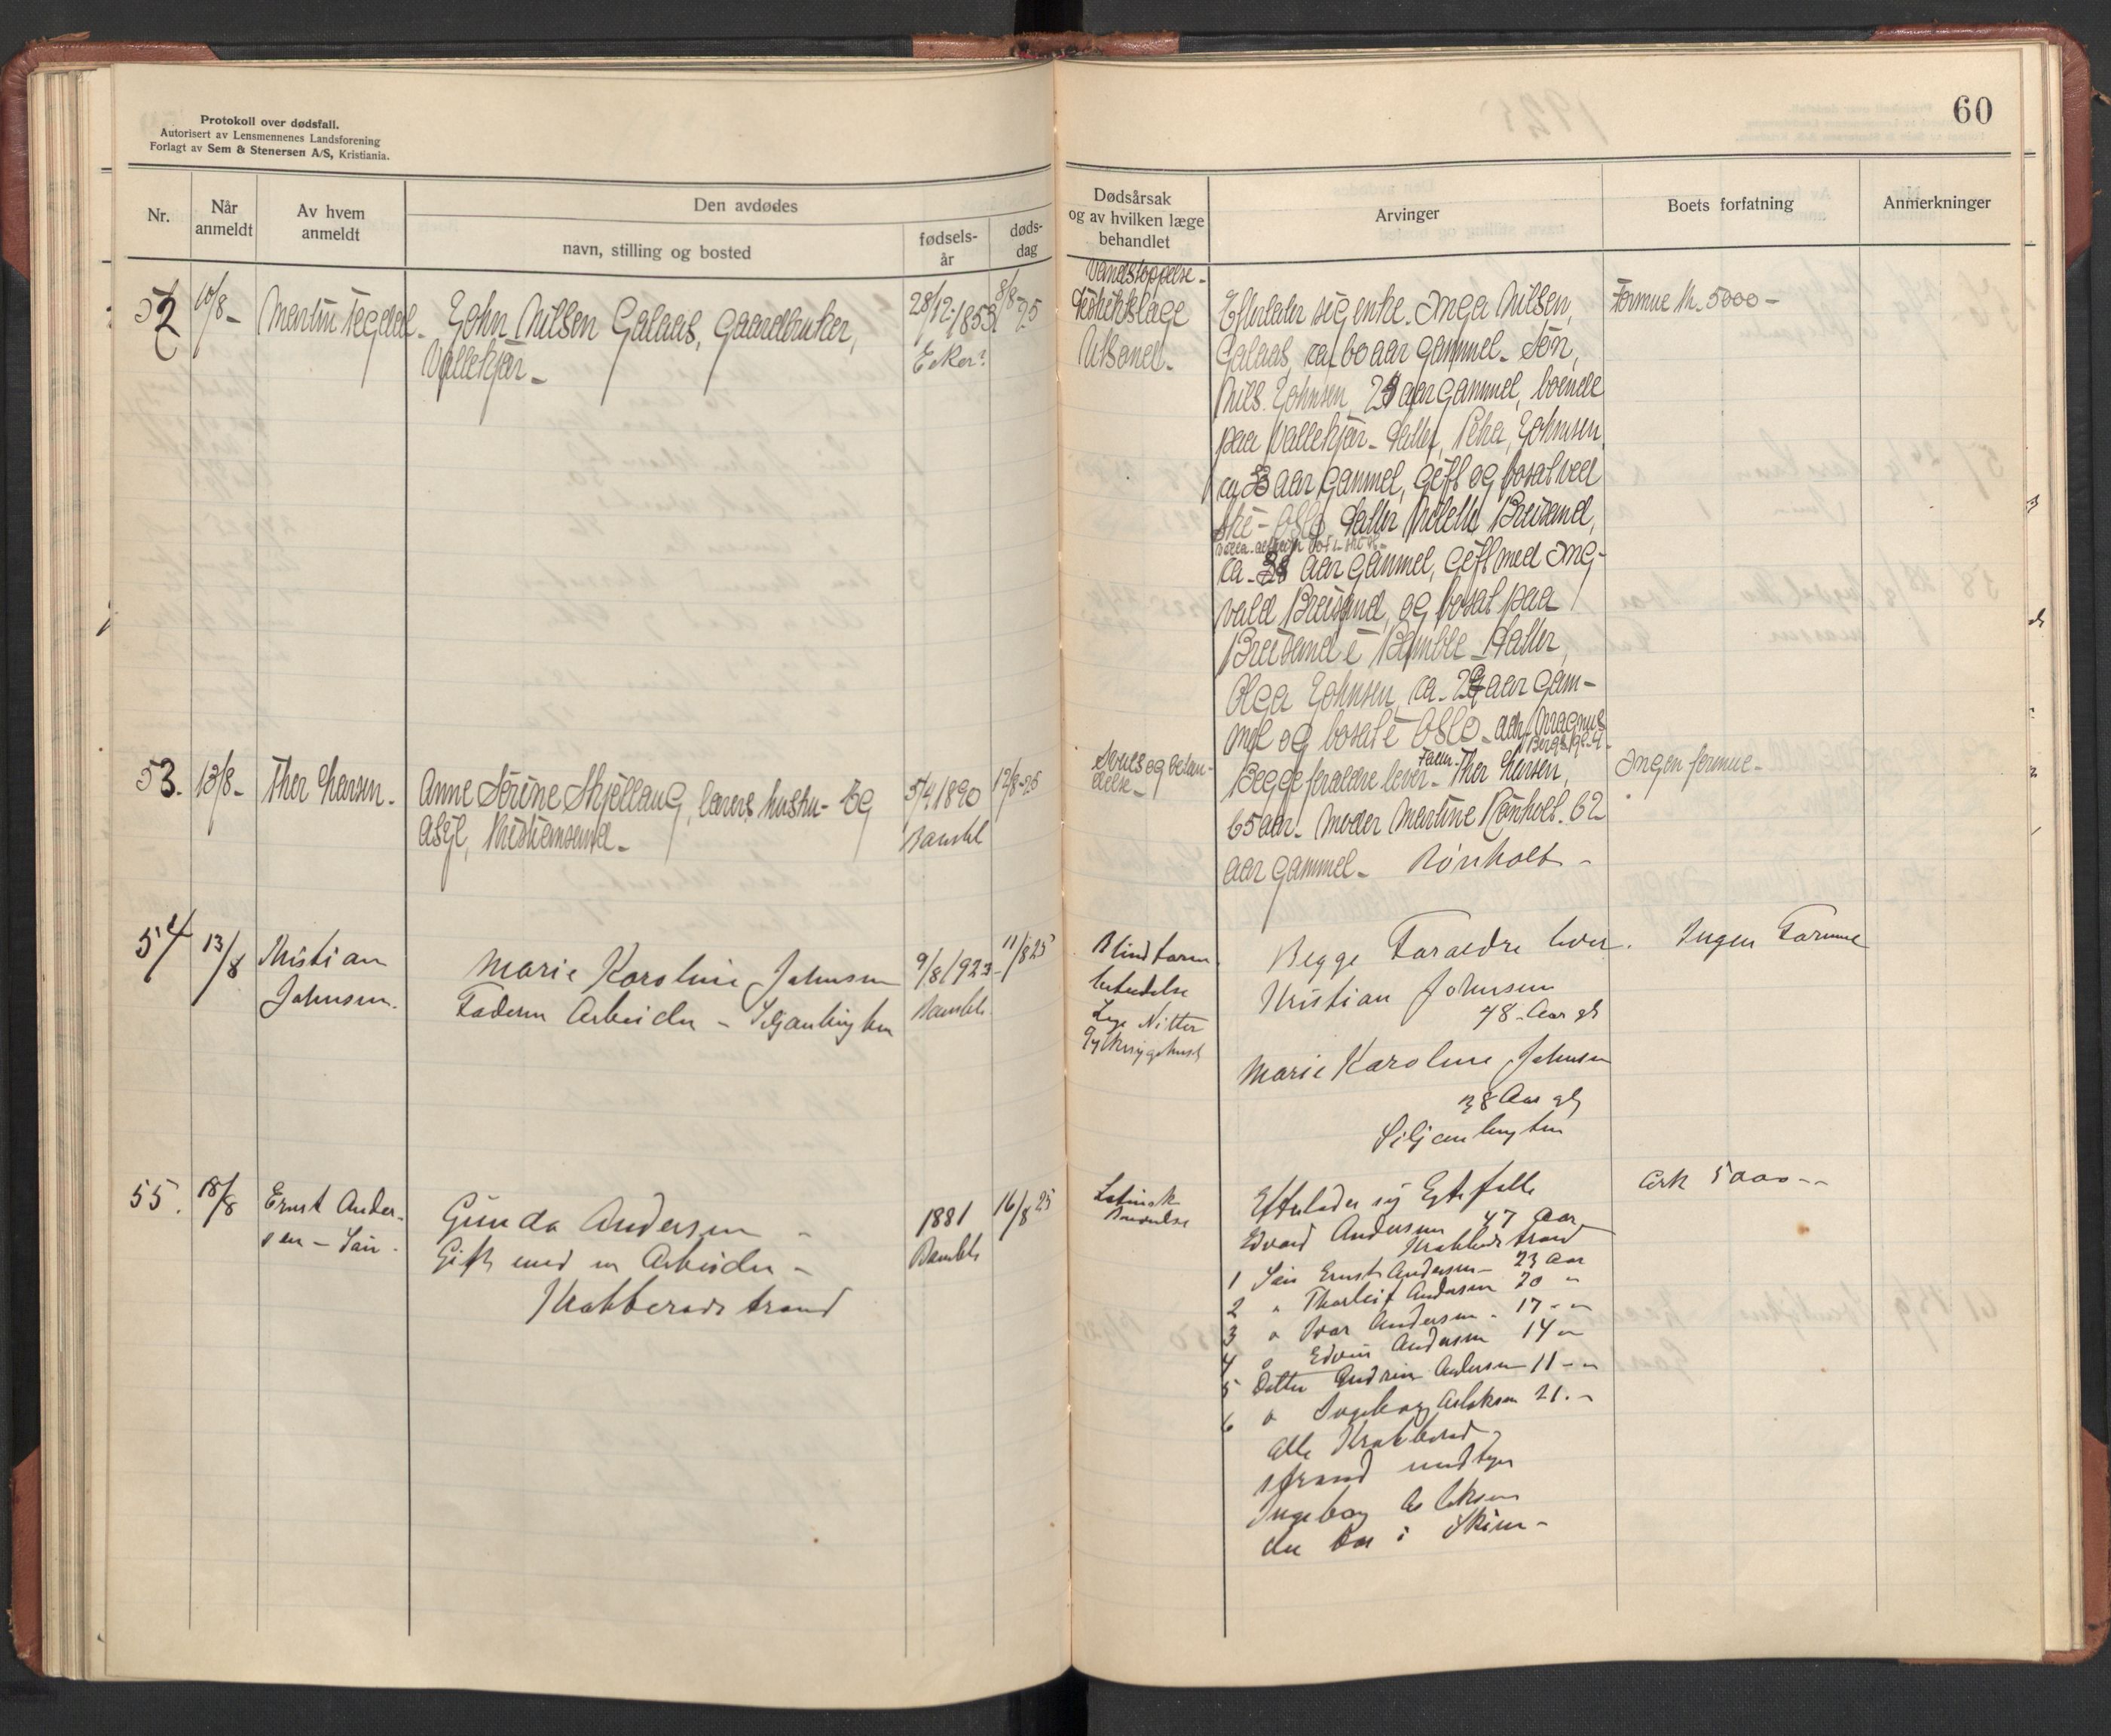 Protokoll over dødsfall.
Autorisert av Lensmennenes Landsforening
Forlagt av Sem & Stenersen A/S, Kristiania.
60
Nr.
Når
anmeldt
Av hvem
anmeldt
Den avdødes
navn, stilling og bosted
fødsels-
år
døds-
dag
Dødsårsak
og av hvilken læge
behandlet
Arvinger
Boets forfatning
Anmerkninger
52
10/8-
Martin Tegdal-
John Nilsen Galaas, Gaardbruker,
Vallekjær-
28/12-1853
8/8-25
Vandstoppelse-
Efterlater sig enke. Inga Nilsen,
Galaas, ca. 60 aar gammel- Søn,
Nils. Johnsen, aar gammel, boende
paa Vallekjær- datter, Petra, Johnsen
ca aar gammel, Gift og bosat ved
Ski-Oslo Datter Breisand,
ca- aar gammel, Gift med Ing-
vald Breisand, og bosat paa
Breisand i Bamble- Datter,
Olga Johnsen, ca- aar gam-
mel og bosat i Oslo-
Formue Kr. 5000-
53.
13/8-
Thor Larsen-
Anne Sørine Skjellaug, lærers hustru- Eg
Asyl, Kristiansand-
5/4 1890
Bamble
12/8-25
Begge foreldre lever- Fader. Thor Larsen,
65 aar- Moder Martine Rønholt. 62
aar gammel- Rønholt-
Ingen formue-
54
13/8
Kristian
Johnsen.
Marie Karoline Johnsen
Faderen Arbeider -
9/8 1923-
Bamble.
11/8 25
Blindtarm
betendelse
Læge Nitter
Begge Foraldre lever.
Kristian Johnsen
48- Aar gl
Marie Karoline Johnsen
38 Aar gl
Ingen Formue
55.
18/8
Ernst Ander-
sen - Søn.
Gunda Andersen -
Gift med en Arbeider -
Krabberødstrand
1881
Bamble
16/8 25
Efterlader sig Egtefelle
Edvard Andersen 47 Aar
Krabberødstrand
1 Søn Ernst Andersen- 23 Aar
2 " Thorleif Andersen 20 "
3 " Ivar Andersen - 17 - "
4 " Edvin Andersen 14 "
5 Datter Andersen 11 - "
6 " Ingeborg Aslaksen 21. -
alle Krabberød-
strand undtagen
Ingeborg Aslaksen
der bor i Skien-
Cirk 5000--